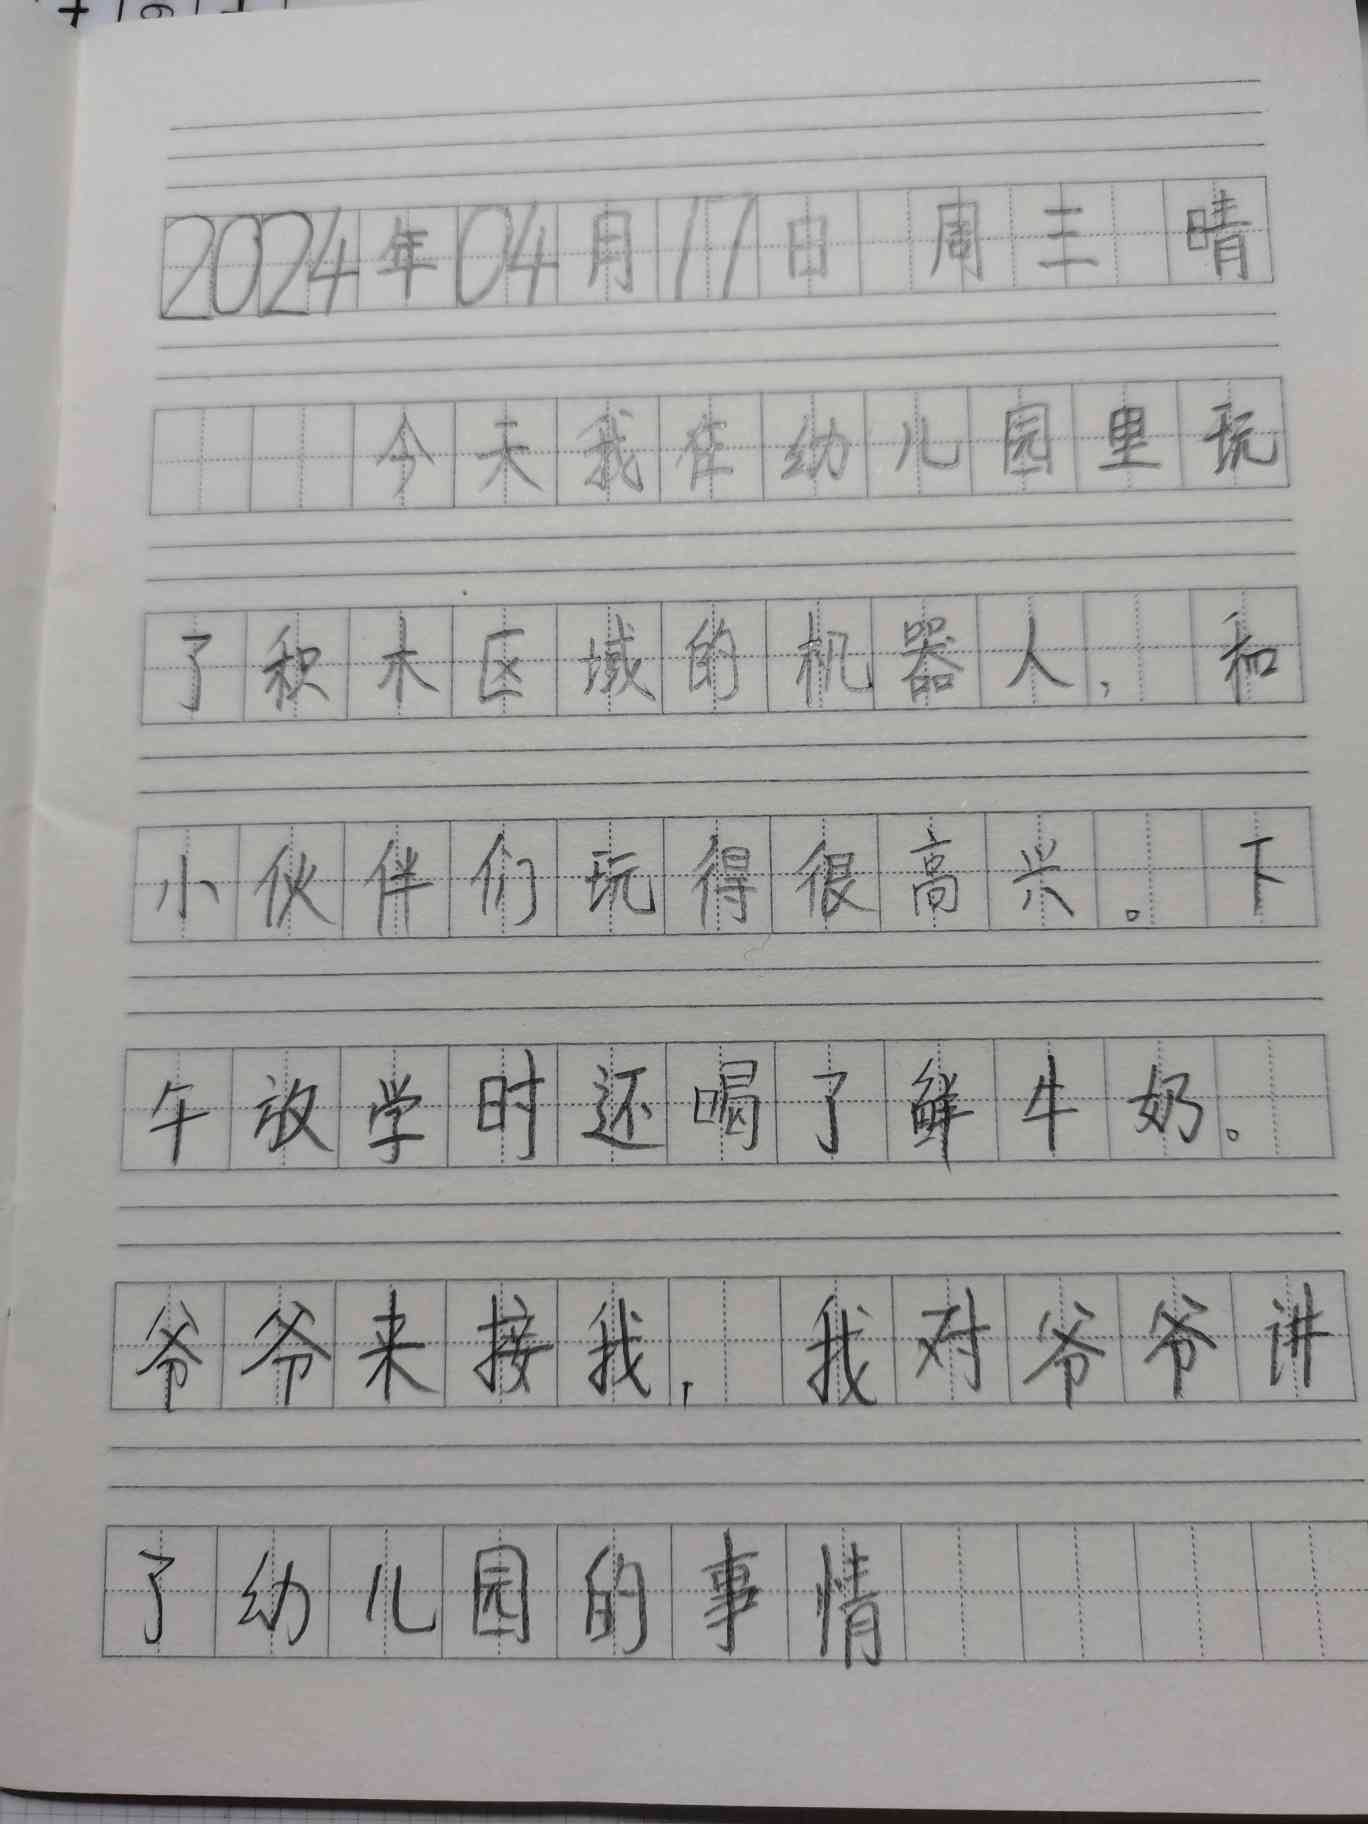 2024年04月17日 周三 晴
今天我在幼儿园里玩
了积木区域的机器人，和
小伙伴们玩得很高兴。下
午放学时还喝了鲜牛奶。
爷爷来接我，我对爷爷讲
了幼儿园的事情